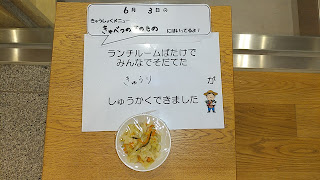 6月 3日の
きゅうしょくメニュー
きゃべつの そのもの にはいってるよ!
ランチルームばたけで
みんなでそだてた
きゅうり が
しゅうかくできました